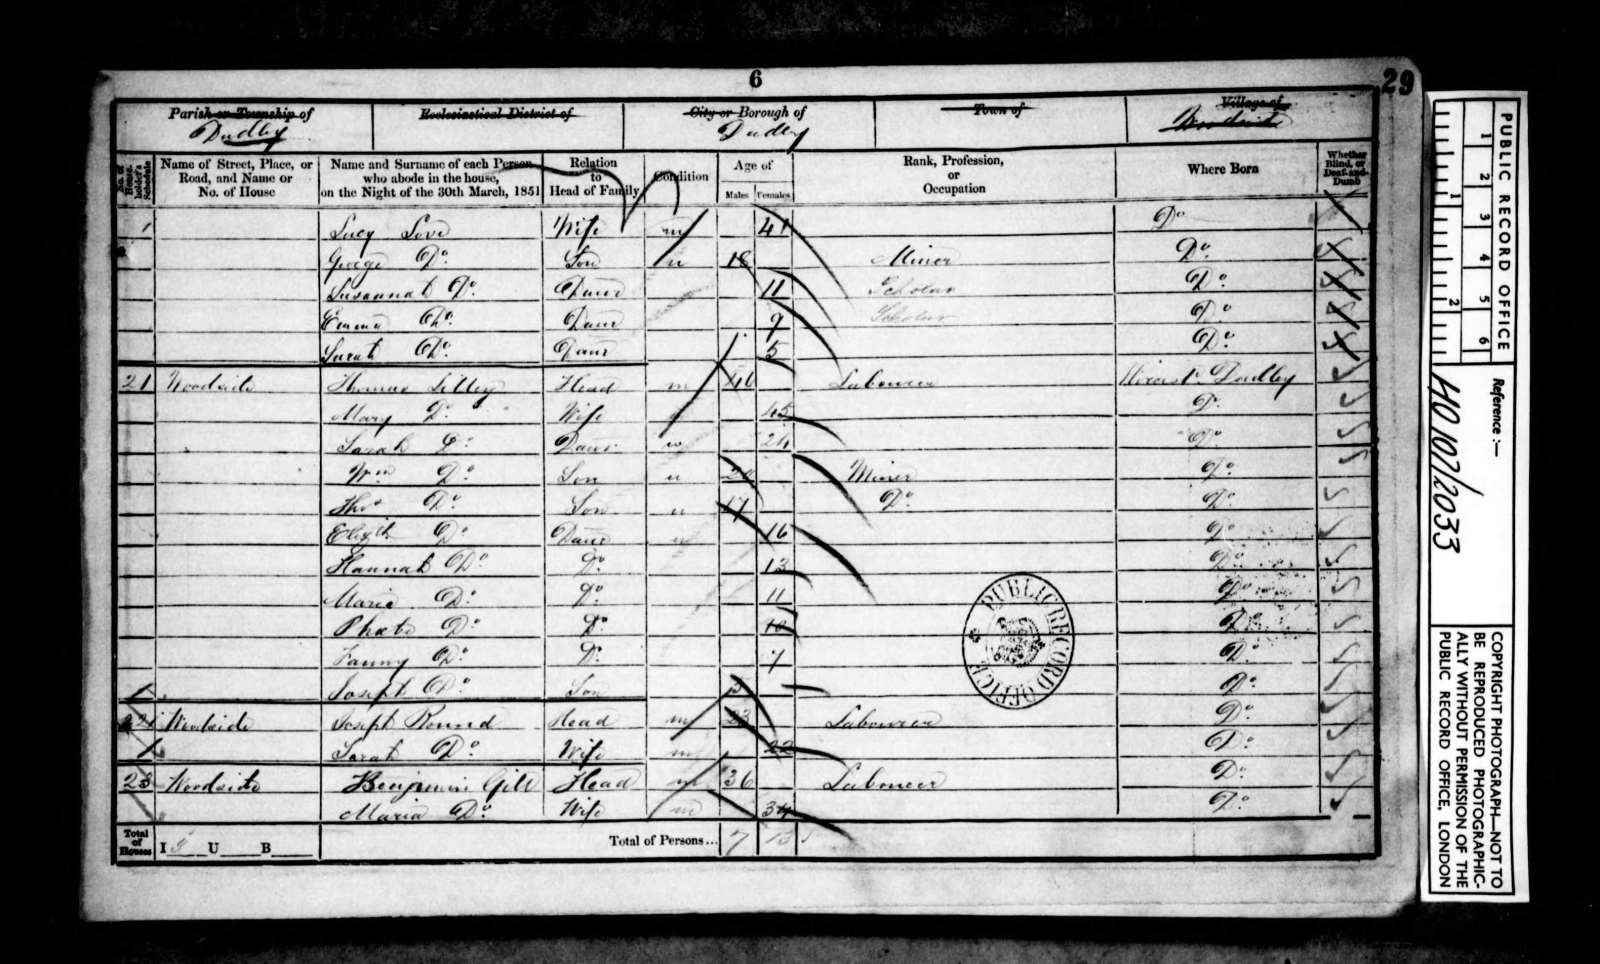 6
29
Parish or Township of
Dudley
Ecclesiastical District of
City or Borough of
Dudley
Town of
Village of
Woodside
No. of House-holder's Schedule
Name of Street, Place, or Road, and Name or No. of House
Name and Surname of each Person who abode in the house, on the Night of the 30th March, 1851
Relation to Head of Family
Condition
Age of
Males
Females
Rank, Profession, or Occupation
Where Born
Whether Blind, or Deaf-and-Dumb
Lucy Love Wife m 41 Do
George Do. Son u 18 Miner Do.
Susannah Do. Daur 11 Scholar Do.
Emma Do. Daur 9 Scholar Do.
Sarah Do. Daur 5 Do.
21 Woodside Thomas Lilley Head m 46 Labourer Worcestr. Dudley
Mary Do. Wife 45 Do.
Sarah Do. Daur. 24 Do.
Wm Do. Son u 20 Miner Do.
Thos Do. Son u 17 Do. Do.
Elizth Do. Daur u 16 Do.
Hannah Do. Do. 13 Do.
Maria Do. Do. 11 Do.
Phœbe Do. Do. 10 Do.
Fanny Do. Do. 7 Do.
Joseph Do. Son 5 Do.
22 Woodside Joseph Round Head m 23 Labourer Do.
Sarah Do. Wife m 22 Do.
23 Woodside Benjamin Gill Head m 36 Labourer Do.
Maria Do. Wife m 34 Do.
Total of Houses I 3 U B Total of Persons... 7 13
PUBLIC RECORD OFFICE
PUBLIC RECORD OFFICE
1 2 3 4 5 6
1 2
Reference :—
HO 107/2033
COPYRIGHT PHOTOGRAPH—NOT TO
BE REPRODUCED PHOTOGRAPHIC-
ALLY WITHOUT PERMISSION OF THE
PUBLIC RECORD OFFICE, LONDON